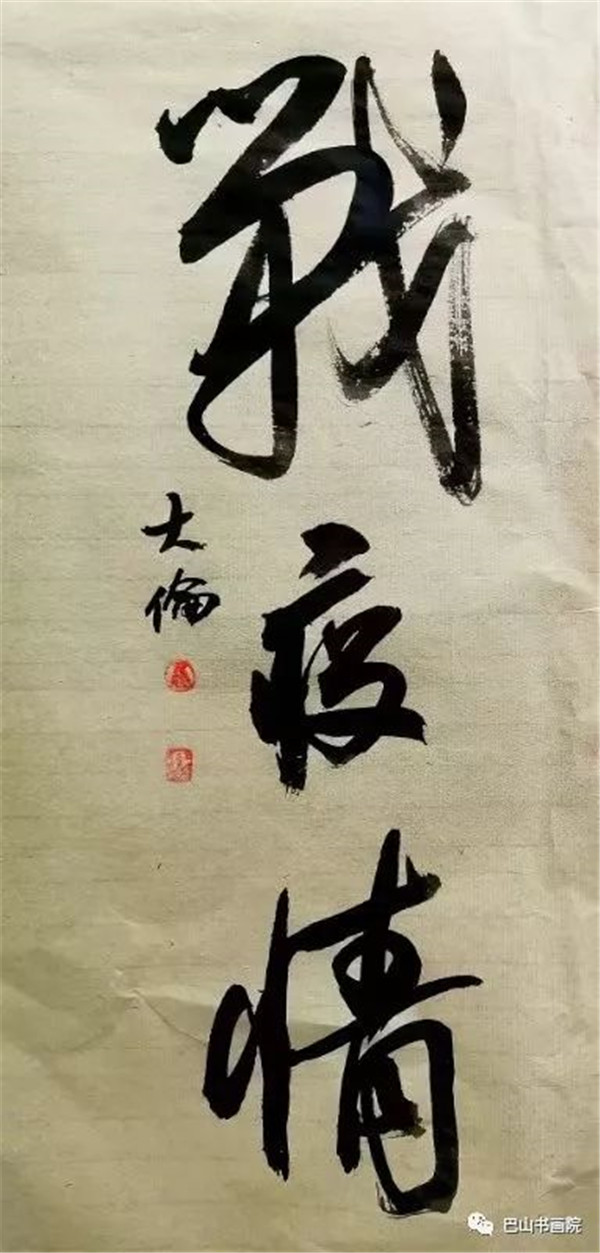 戰疫情
大倫
巴山书画院